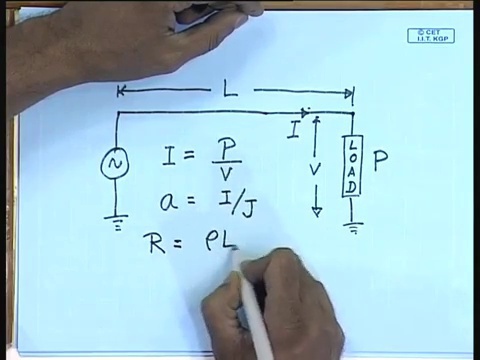 © CET
I.I.T. KGP
L
I
V
LOAD
P
~
I = P/V
a = I/J
R = ρL